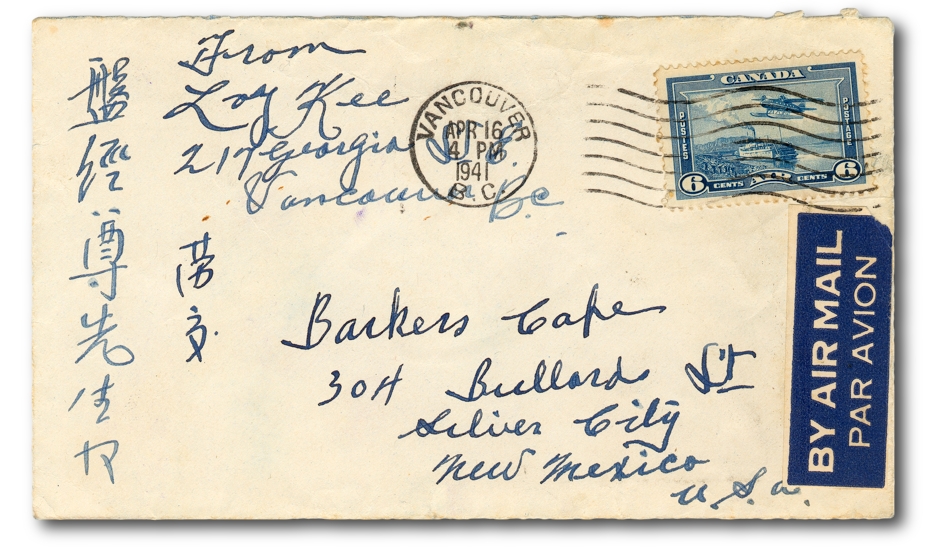 From
Loy Kee
217 Georgia St E.
Vancouver B.C
VANCOUVER
APR 16
4 PM
1941
B.C.
CANADA
POSTES
POSTAGE
6 CENTS AIR CENTS 6
BY AIR MAIL
PAR AVION
尊先生
交
Barkers Cafe
304 Bullards St
Silver City
New Mexico
U.S.A.